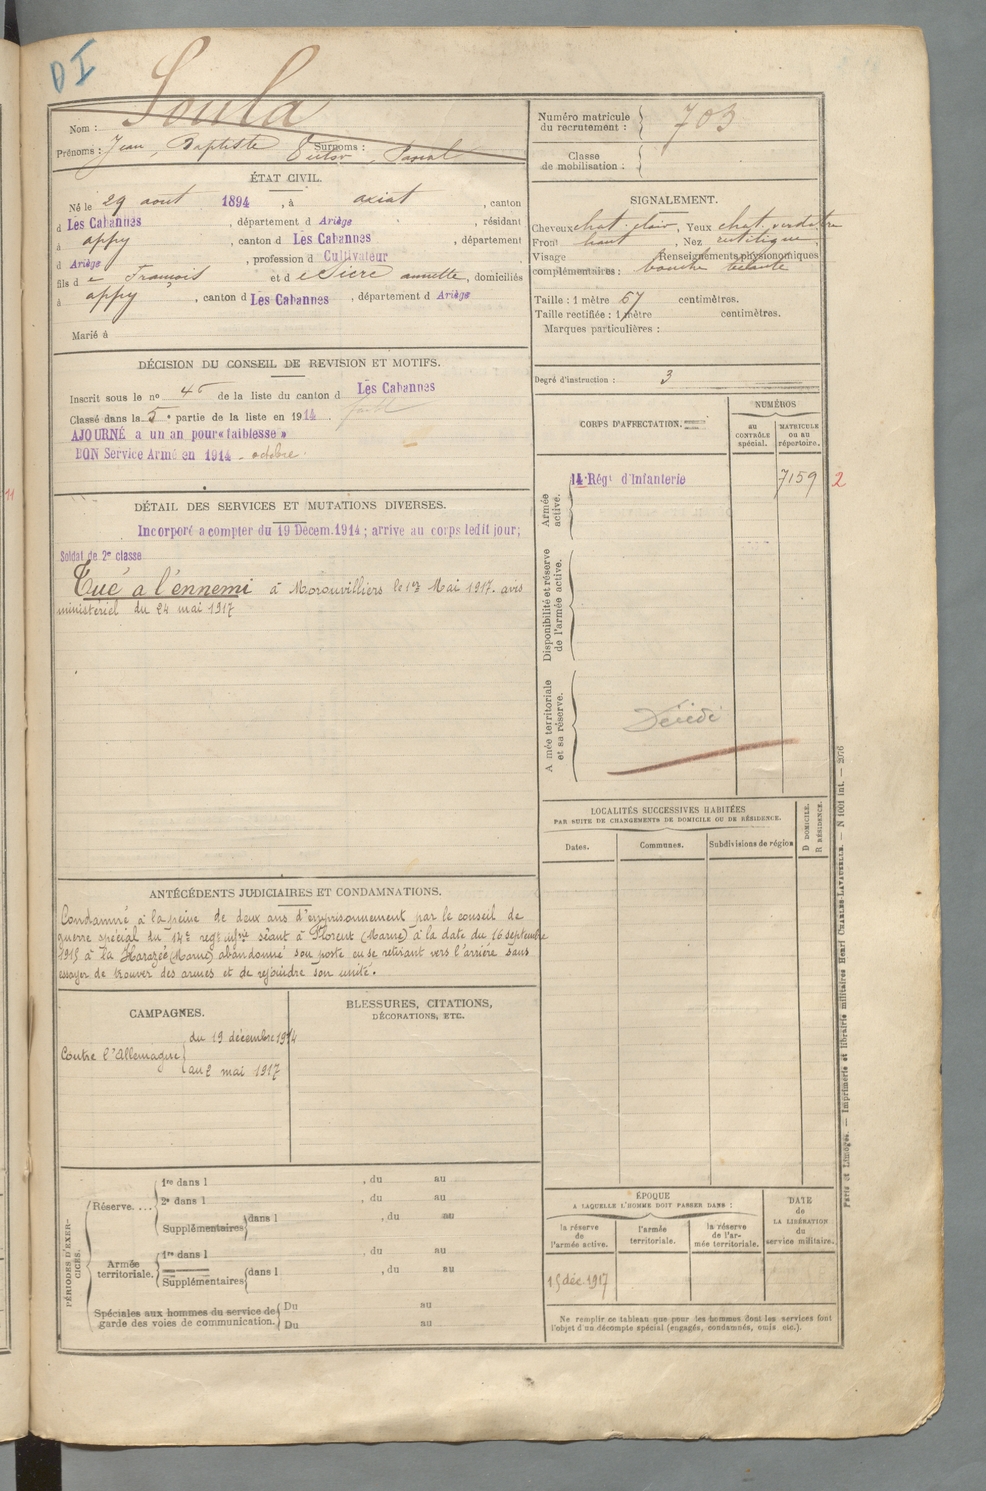 DI
Nom : Soula
Prénoms : Jean, Baptiste Victor, Pascal Surnoms :
Numéro matricule du recrutement : 703
Classe de mobilisation :
ÉTAT CIVIL.
Né le 29 aout 1894, à axiat, canton
d Les Cabannes, département d Ariège, résidant
à appy, canton d Les Cabannes, département
d Ariège, profession d Cultivateur
fils d e François et d e Sicre annette, domiciliés
à appy, canton d Les Cabannes, département d Ariège
Marié à
SIGNALEMENT.
Cheveux chat. clair, Yeux chat. verdatre
Front haut, Nez rectiligne,
Visage Renseignements physionomiques
complémentaires : bouche
Taille : 1 mètre 57 centimètres.
Taille rectifiée : 1 mètre centimètres.
Marques particulières :
Degré d'instruction : 3
DÉCISION DU CONSEIL DE REVISION ET MOTIFS.
Inscrit sous le nº 45 de la liste du canton d Les Cabannes
Classé dans la 5e partie de la liste en 1914
AJOURNÉ à un an pour «faiblesse»
BON Service Armé en 1914 - octobre.
CORPS D'AFFECTATION.
NUMÉROS
au CONTRÔLE spécial.
MATRICULE ou au répertoire.
Armée active.
14 Régt d'Infanterie 7159 2
Disponibilité et réserve de l'armée active.
A mée territoriale et sa réserve.
Décédé
DÉTAIL DES SERVICES ET MUTATIONS DIVERSES.
Incorporé a compter du 19 Décem. 1914 ; arrive au corps ledit jour;
Soldat de 2e classe
Tué à l'ennemi à Moronvilliers le 1er Mai 1917. avis
ministériel du 24 mai 1917
LOCALITÉS SUCCESSIVES HABITÉES
PAR SUITE DE CHANGEMENTS DE DOMICILE OU DE RÉSIDENCE.
Dates.
Communes.
Subdivisions de région
D DOMICILE.
R RÉSIDENCE.
ANTÉCÉDENTS JUDICIAIRES ET CONDAMNATIONS.
Condamné à la peine de deux ans d'emprisonnement par le conseil de
guerre spécial du 14e regt infrie séant à Florent (Marne) à la date du 16 septembre
1915 à la Harazée (Marne) abandonné son poste en se retirant vers l'arrière sans
essayer de trouver des armes et de rejoindre son unité.
CAMPAGNES.
Contre l'Allemagne
du 19 décembre 1914
au 2 mai 1917
BLESSURES, CITATIONS,
DÉCORATIONS, ETC.
PÉRIODES D'EXERCICES.
Réserve. ...
1re dans l , du au
2e dans l , du au
Supplémentaires dans l , du au
Armée territoriale.
1re dans l , du au
Supplémentaires dans l , du au
Spéciales aux hommes du service de
garde des voies de communication.
Du au
Du au
ÉPOQUE
A LAQUELLE L'HOMME DOIT PASSER DANS :
la réserve de l'armée active.
l'armée territoriale.
la réserve de l'armée territoriale.
DATE de LA LIBÉRATION du service militaire.
15 déc. 1917
Ne remplir ce tableau que pour les hommes dont les services font
l'objet d'un décompte spécial (engagés, condamnés, omis etc.).
Paris et Limoges. — Imprimerie et librairie militaires Henri CHARLES-LAVAUZELLE. — N 1001 int. — 2076